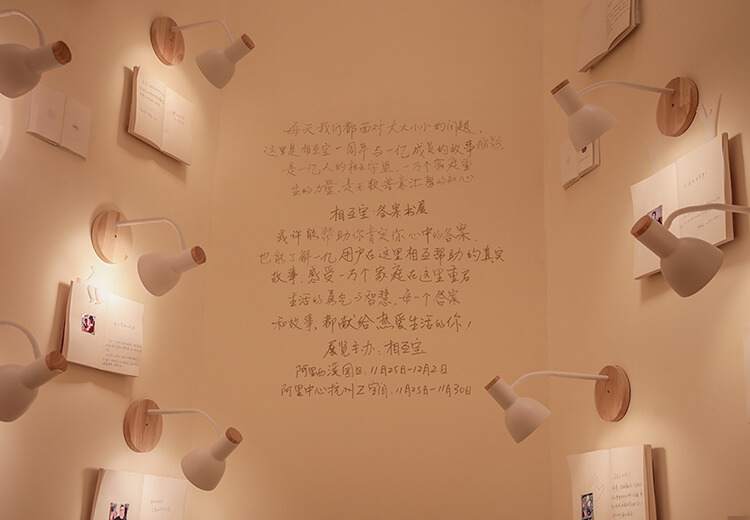 每天我们都面对大大小小的问题,
这里是相互宝一周年与一亿成员的故事
是一亿人的相互守望,一万个家庭重
生的力量,是无数善意汇聚的初心
相互宝 答案书展
或许能帮助你肯定你心中的答案,
也能了解一亿用户在这里相互帮助的真实
故事,感受一万个家庭在这里重启
生活的勇气与智慧,每一个答案
和故事,都献给热爱生活的你!
展览主办:相互宝
阿里西溪园区:11月25日-12月2日
阿里中心杭州Z空间:11月25日-11月30日